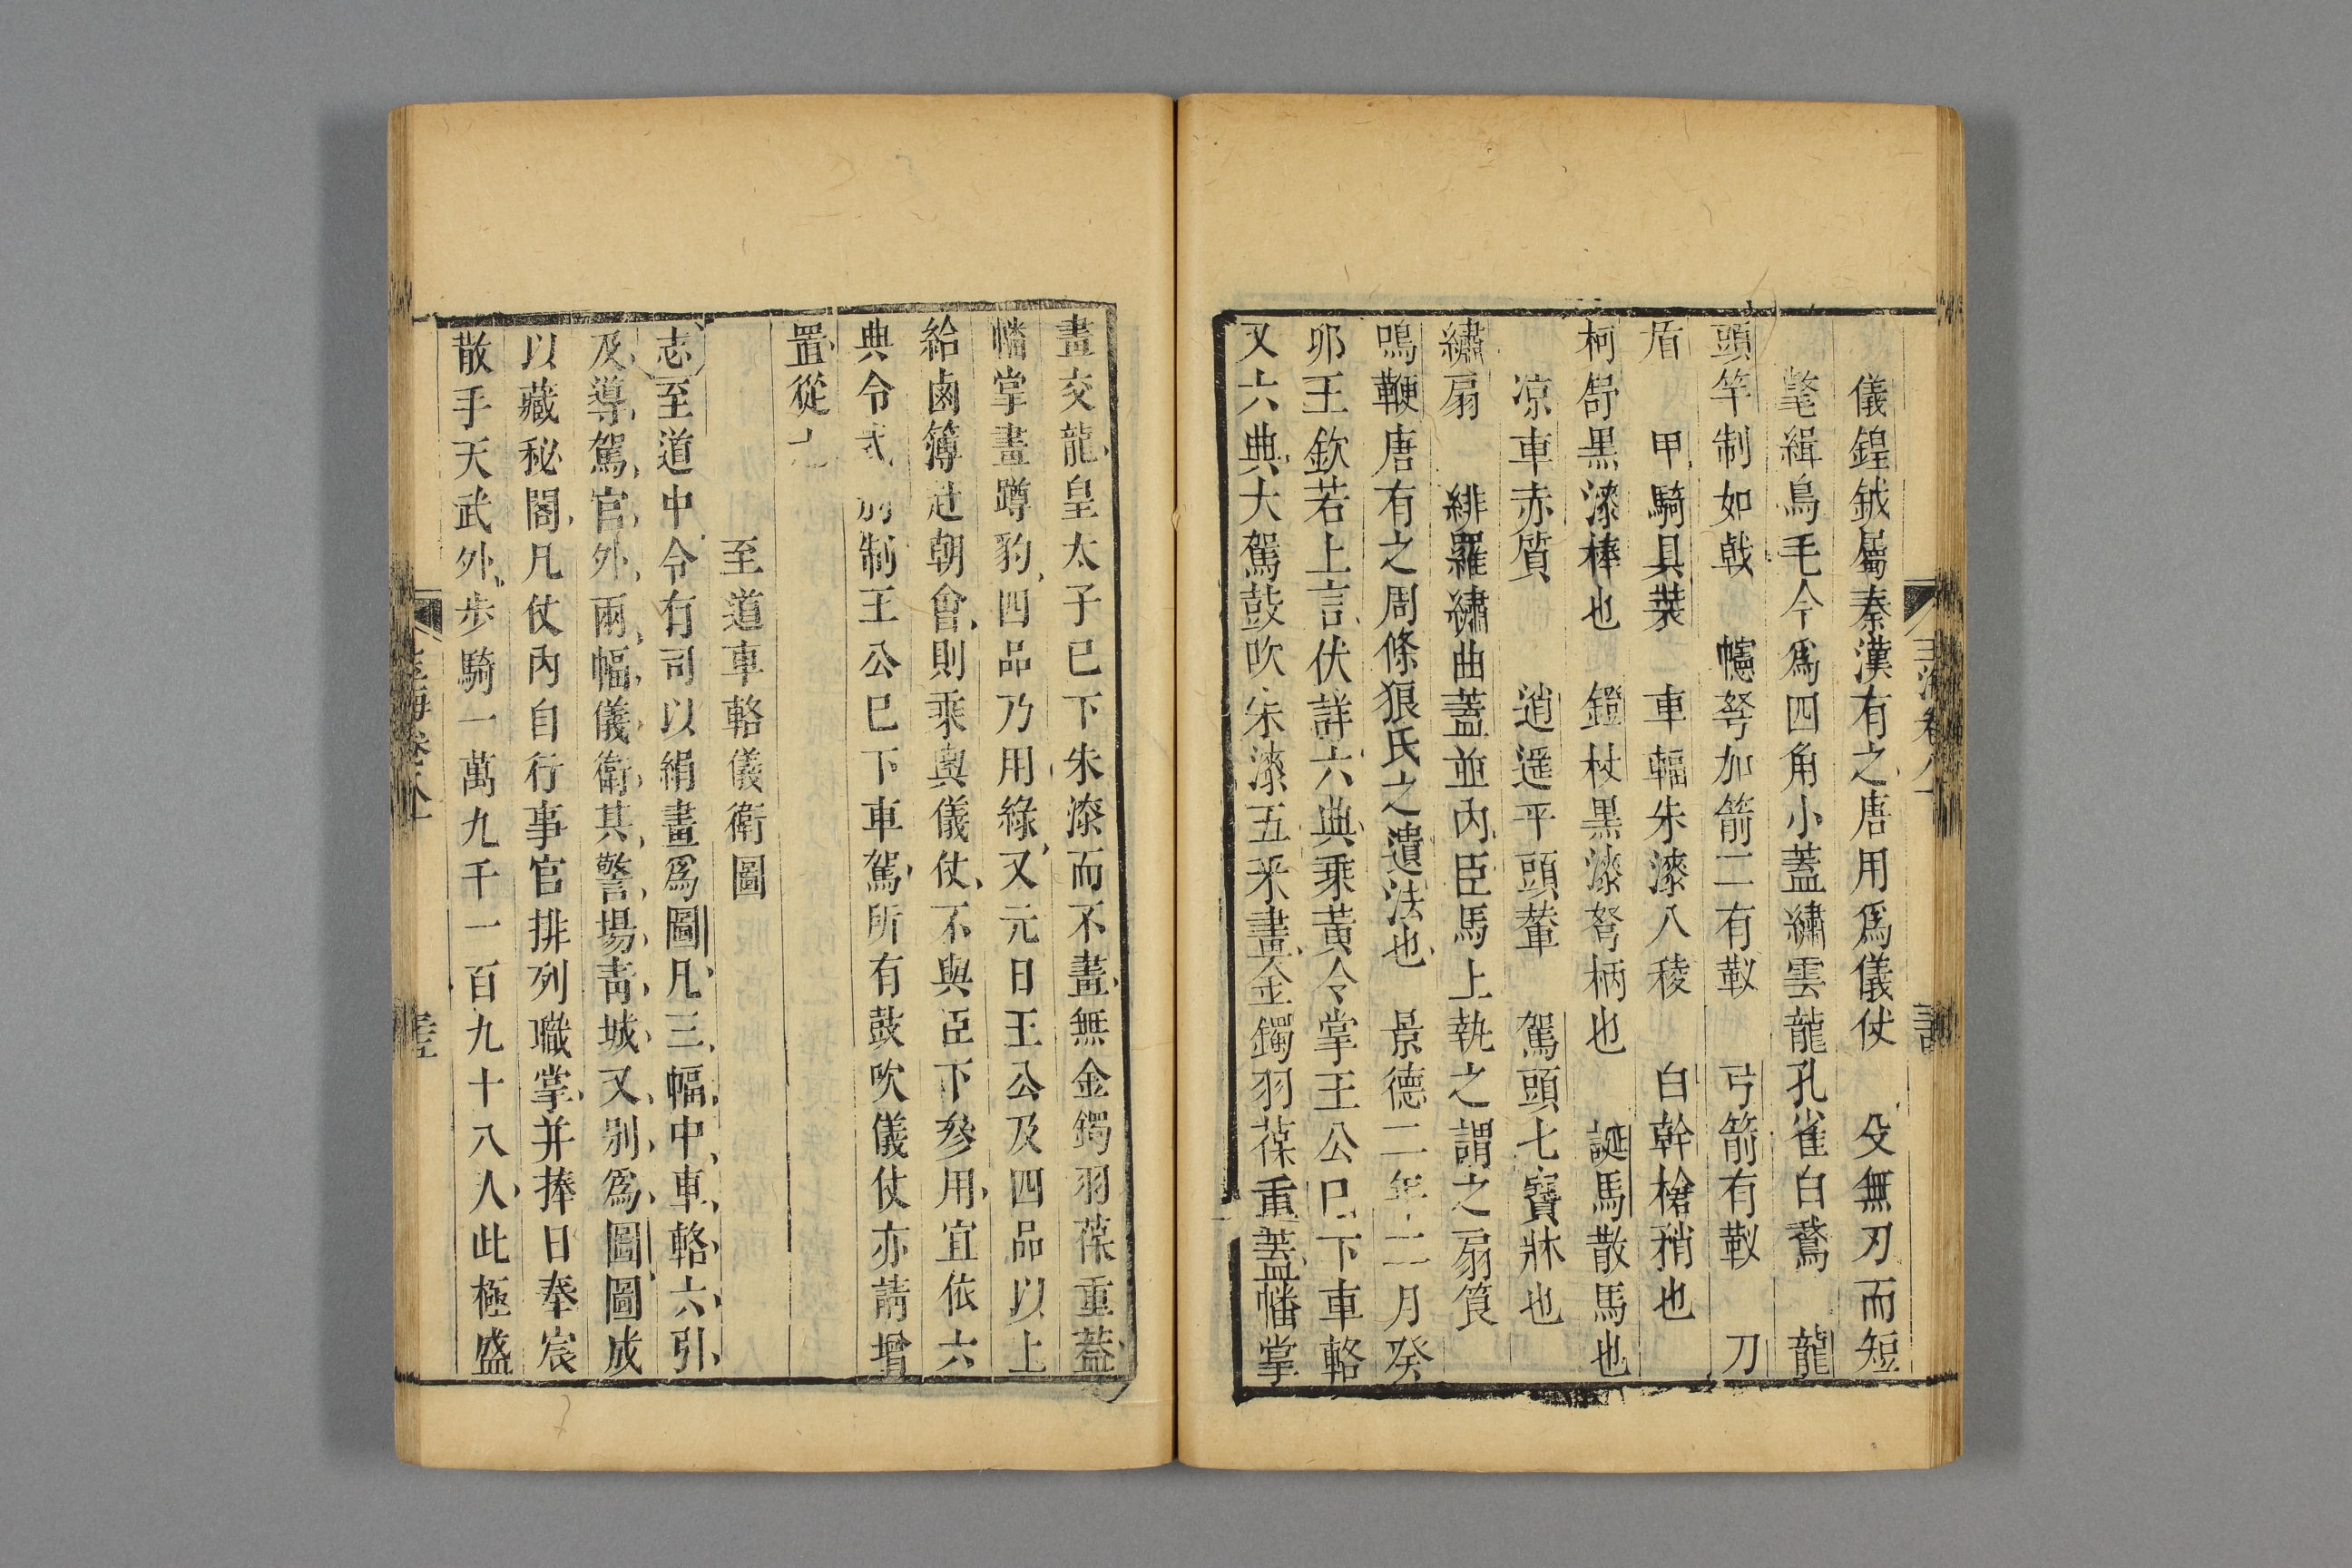 儀鍠鉞屬秦漢有之唐用爲儀仗　殳無刃而短
氅緝鳥毛今爲四角小蓋繡雲龍孔雀白鵞　龍
頭竿制如戟　幰弩加箭二有靫　弓箭有靫　刀
盾　甲騎具裝　車輻朱漆八稜　白幹槍稍也
柯舒黑漆棒也　鐙杖黑漆弩柄也　誕馬散馬也
凉車赤質　逍遥平頭輦　駕頭七寶牀也
繡扇　緋羅繡曲蓋並內臣馬上執之謂之扇筤
鳴鞭唐有之周條狼氏之遺法也　景德二年二月癸
卯王欽若上言伏詳六典乗黃令掌王公巳下車輅
又六典大駕鼓吹朱漆五采畫金鐲羽葆重蓋幡掌
畫交龍皇太子已下朱漆而不畫無金鐲羽葆重蓋
幡掌畫蹲豹四品乃用綠又元日王公及四品以上
給鹵簿赴朝會則乘輿儀仗不與臣下參用宜依六
典令式別制王公巳下車駕所有鼓吹儀仗亦請增
置從之
至道車輅儀衛圖
志至道中令有司以絹畫爲圖凡三幅中車輅六引
及導駕官外兩幅儀衛其警場靑城又別爲圖圖成
以藏秘閣凡仗內自行事官排列職掌并捧日奉宸
散手天武外步騎一萬九千一百九十八人此極盛
玉海卷八十